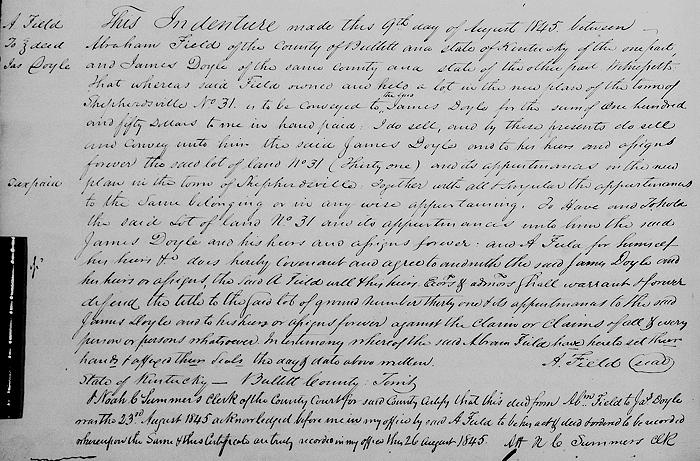 A Field
To } deed
Jas Doyle
This Indenture made this 9th day of August 1845 between
Abraham Field of the County of Bullett and state of Kentucky of the one part
and James Doyle of the same County and state of the other part Witnesseth
That whereas said Field owned and held a lot in the new plan of the town of
Shepherdsville No 31. is to be conveyed to James Doyle for the sum of One hundred
and fifty Dollars to me in hand paid; I do sell, and by these presents do sell
and convey unto him the said James Doyle and to his heirs and assigns
forever the said lot of land No 31 (Thirty one) and its appurtenances in the new
Tax paid
plan in the town of Shepherdsville. Together with all & singular the appurtenances
to the same belonging or in any wise appertaining. To Have and To hold
the said Lot of land No. 31 and its appurtenances unto him the said
James Doyle and his heirs and assigns forever: and A Field for himself
his heirs &c does hereby Covenant and agree to and with the said James Doyle and
his heirs or assigns, the said A Field will & his heirs Exors & admors shall warrant & forever
defend the title to the said lot of ground number thirty one & its appurtenances to the said
James Doyle and to his heirs or assigns forever against the Claim or Claims of all & every
person or persons whatsoever. In testimony whereof the said Abram Field have hereto set their
hands & affixed their seals the day & date above written.
A. Field (seal)
State of Kentucky — Bullett County: Towit
I Noah C Summers Clerk of the County Court for said County Certify that this deed from Abm Field to Jas Doyle
was the 23rd August 1845 acknowledged before me in my office by said A Field to be his act & deed & ordered to be recorded
whereupon the Same & this Certificate are truly recorded in my office this 26 August 1845. Att N C Summers Clk